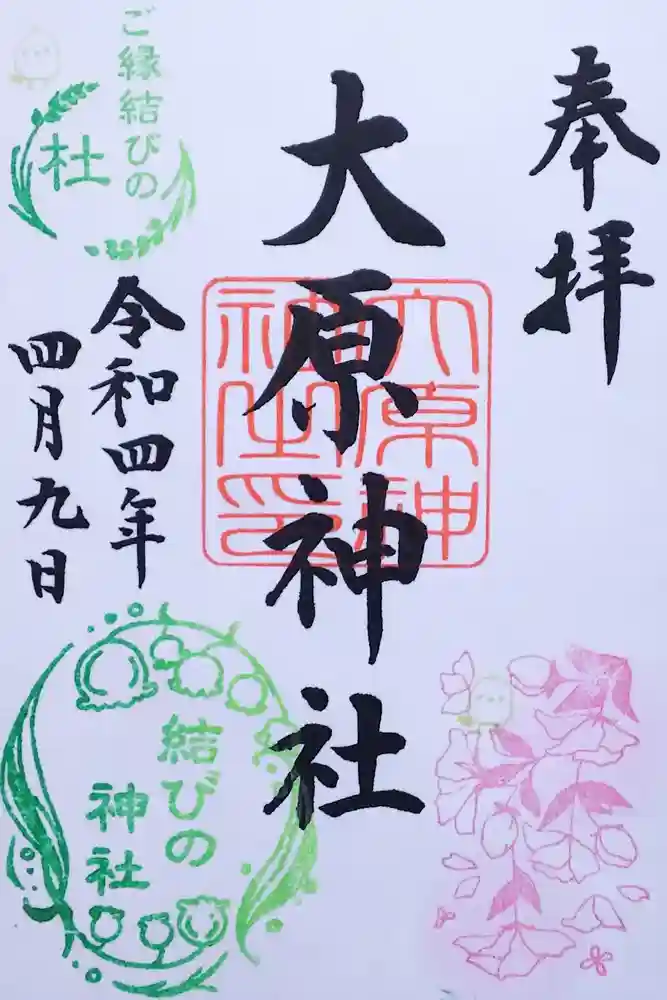 奉拝
大原神社
大原神社之印
令和四年
四月九日
ご縁結びの
杜
結びの
神社